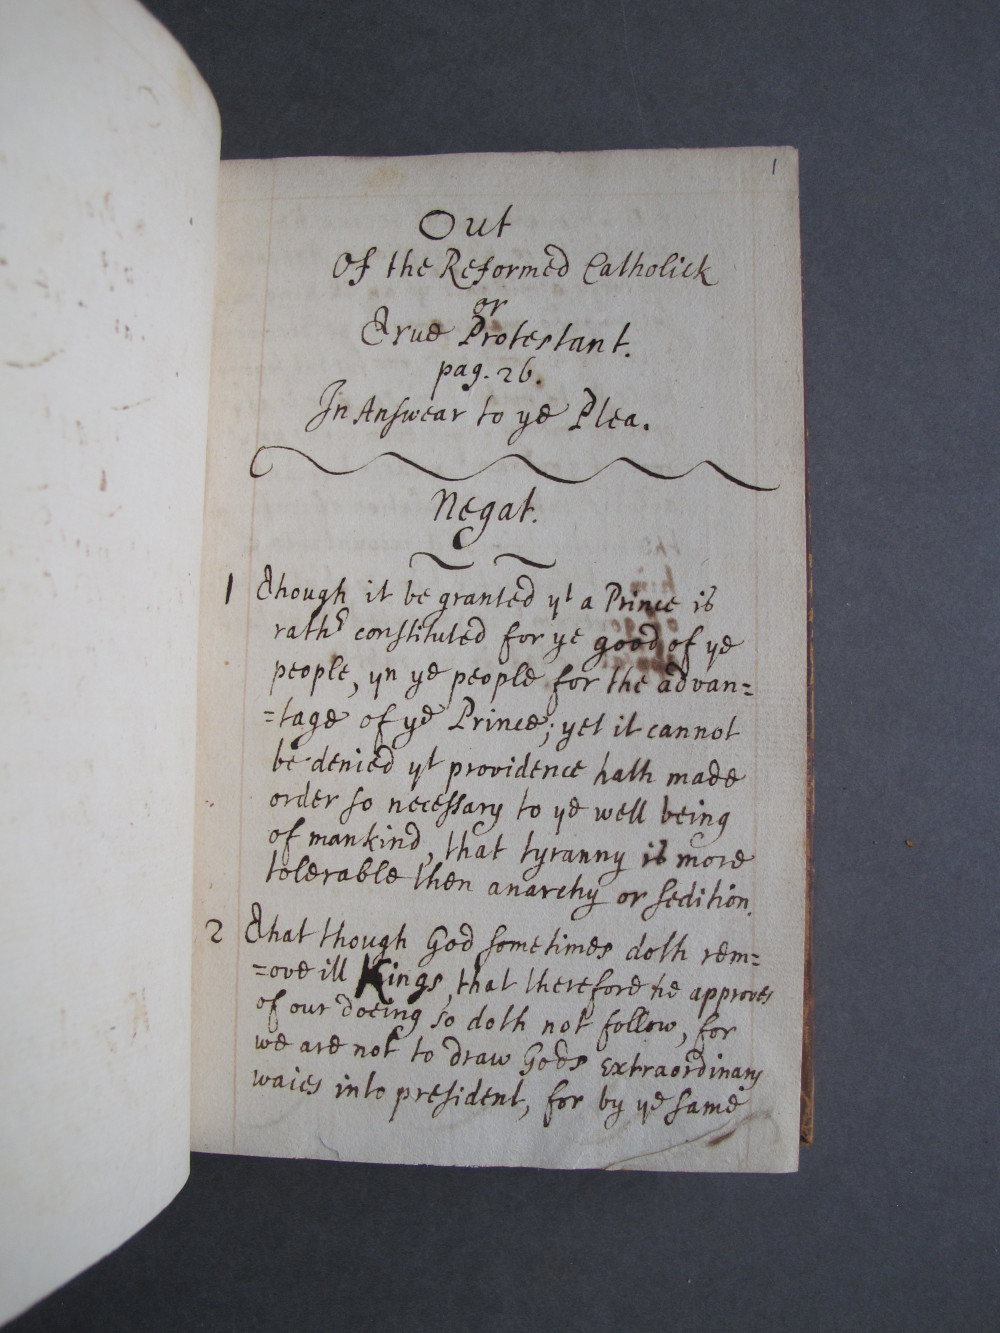 1
Out
Of the Reformed Catholick
or
True Protestant.
pag. 26.
In Answear to ye Plea.
Negat.
1 Though it be granted yt a Prince is
rathr constituted for ye good of ye
people, yn ye people for the advan=
=tage of ye Prince; yet it cannot
be denied yt providence hath made
order so necessary to ye well being
of mankind, that tyranny is more
tolerable then anarchy or sedition.
2 That though God sometimes doth rem=
=ove ill Kings, that therefore he approves
of our doeing so doth not follow, for
we are not to draw Gods extraordinary
waies into president, for by ye same